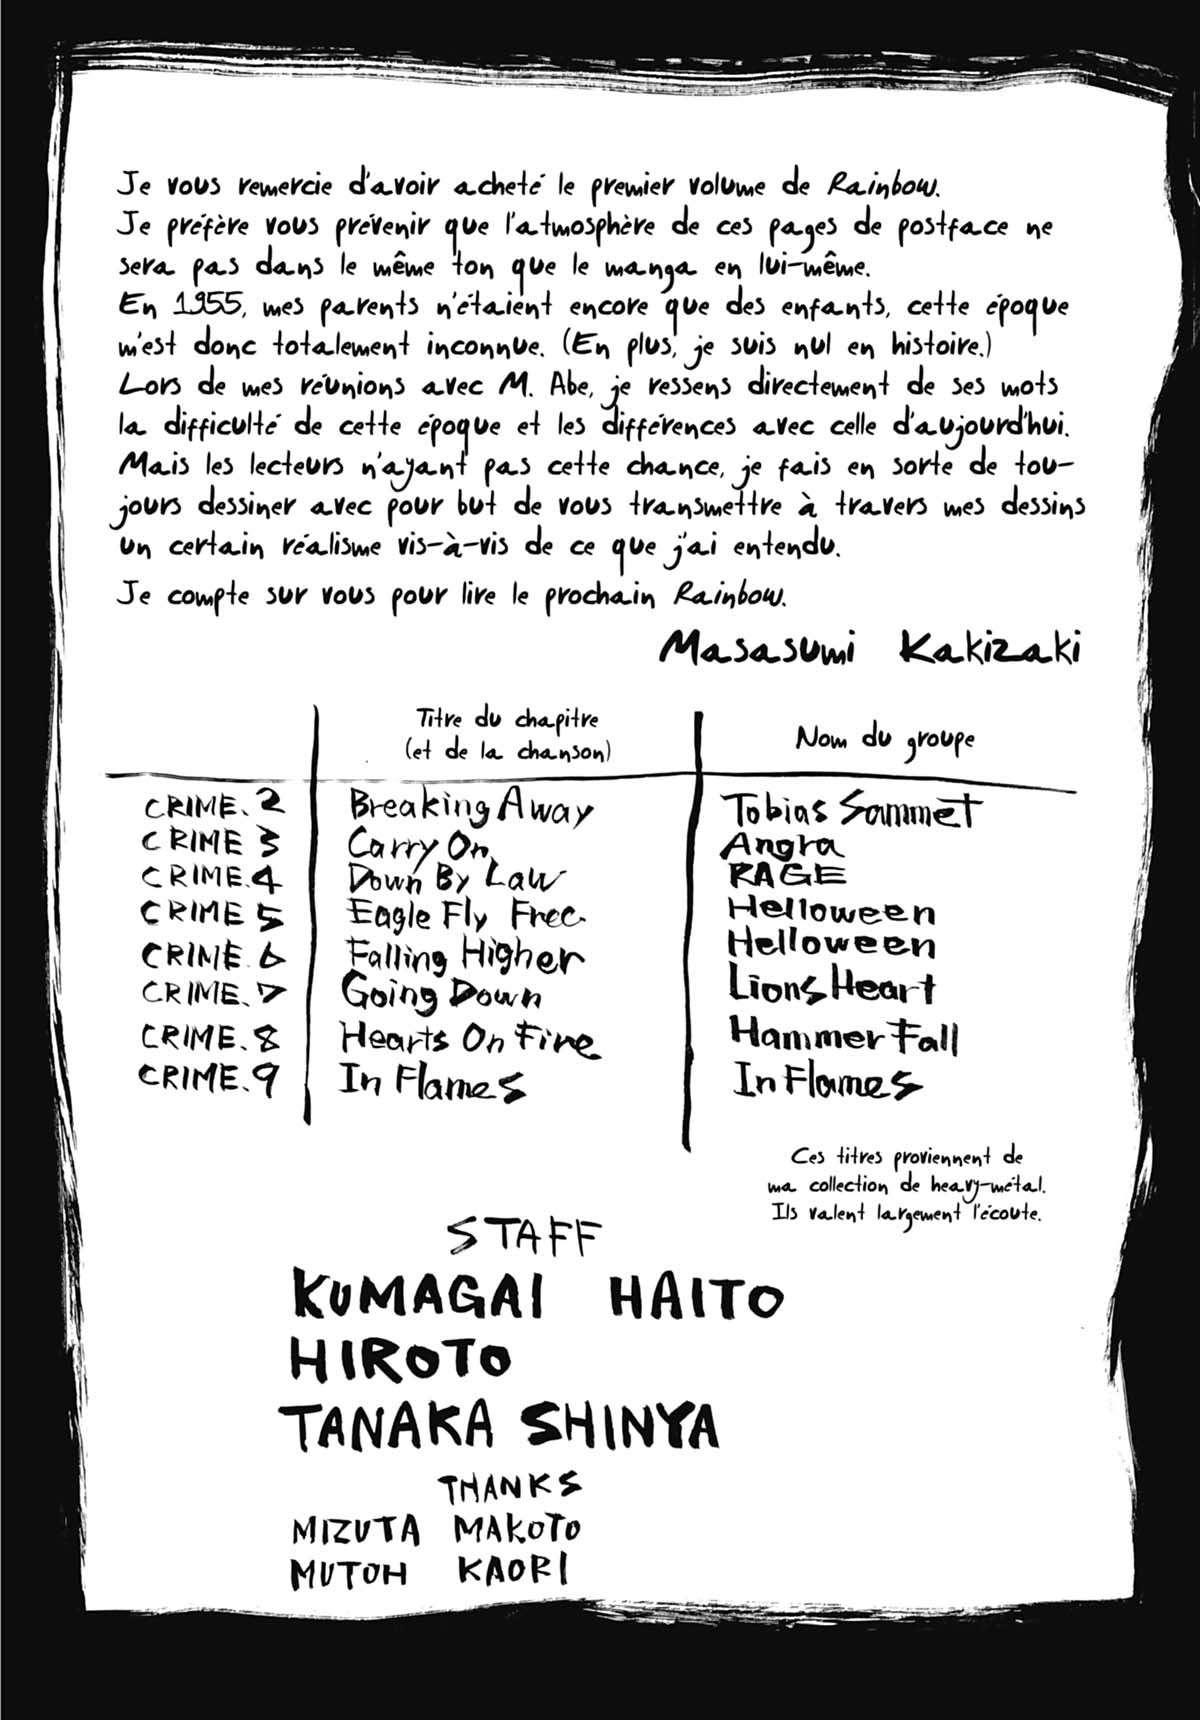 Je vous remercie d'avoir acheté le premier volume de Rainbow.
Je préfère vous prévenir que l'atmosphère de ces pages de postface ne
sera pas dans le même ton que le manga en lui-même.
En 1955, mes parents n'étaient encore que des enfants, cette époque
m'est donc totalement inconnue. (En plus, je suis nul en histoire.)
Lors de mes réunions avec M. Abe, je ressens directement de ses mots
la difficulté de cette époque et les différences avec celle d'aujourd'hui.
Mais les lecteurs n'ayant pas cette chance, je fais en sorte de tou-
jours dessiner avec pour but de vous transmettre à travers mes dessins
un certain réalisme vis-à-vis de ce que j'ai entendu.
Je compte sur vous pour lire le prochain Rainbow.
Masasumi Kakizaki
Titre du chapitre
(et de la chanson)
Nom du groupe
CRIME.2 Breaking Away Tobias Sammet
CRIME 3 Carry On Angra
CRIME.4 Down By Law RAGE
CRIME 5 Eagle Fly Free Helloween
CRIME.6 Falling Higher Helloween
CRIME.7 Going Down Lions Heart
CRIME.8 Hearts On Fire Hammer Fall
CRIME.9 In Flames In Flames
Ces titres proviennent de
ma collection de heavy-métal.
Ils valent largement l'écoute.
STAFF
KUMAGAI HAITO
HIROTO
TANAKA SHINYA
THANKS
MIZUTA MAKOTO
MUTOH KAORI